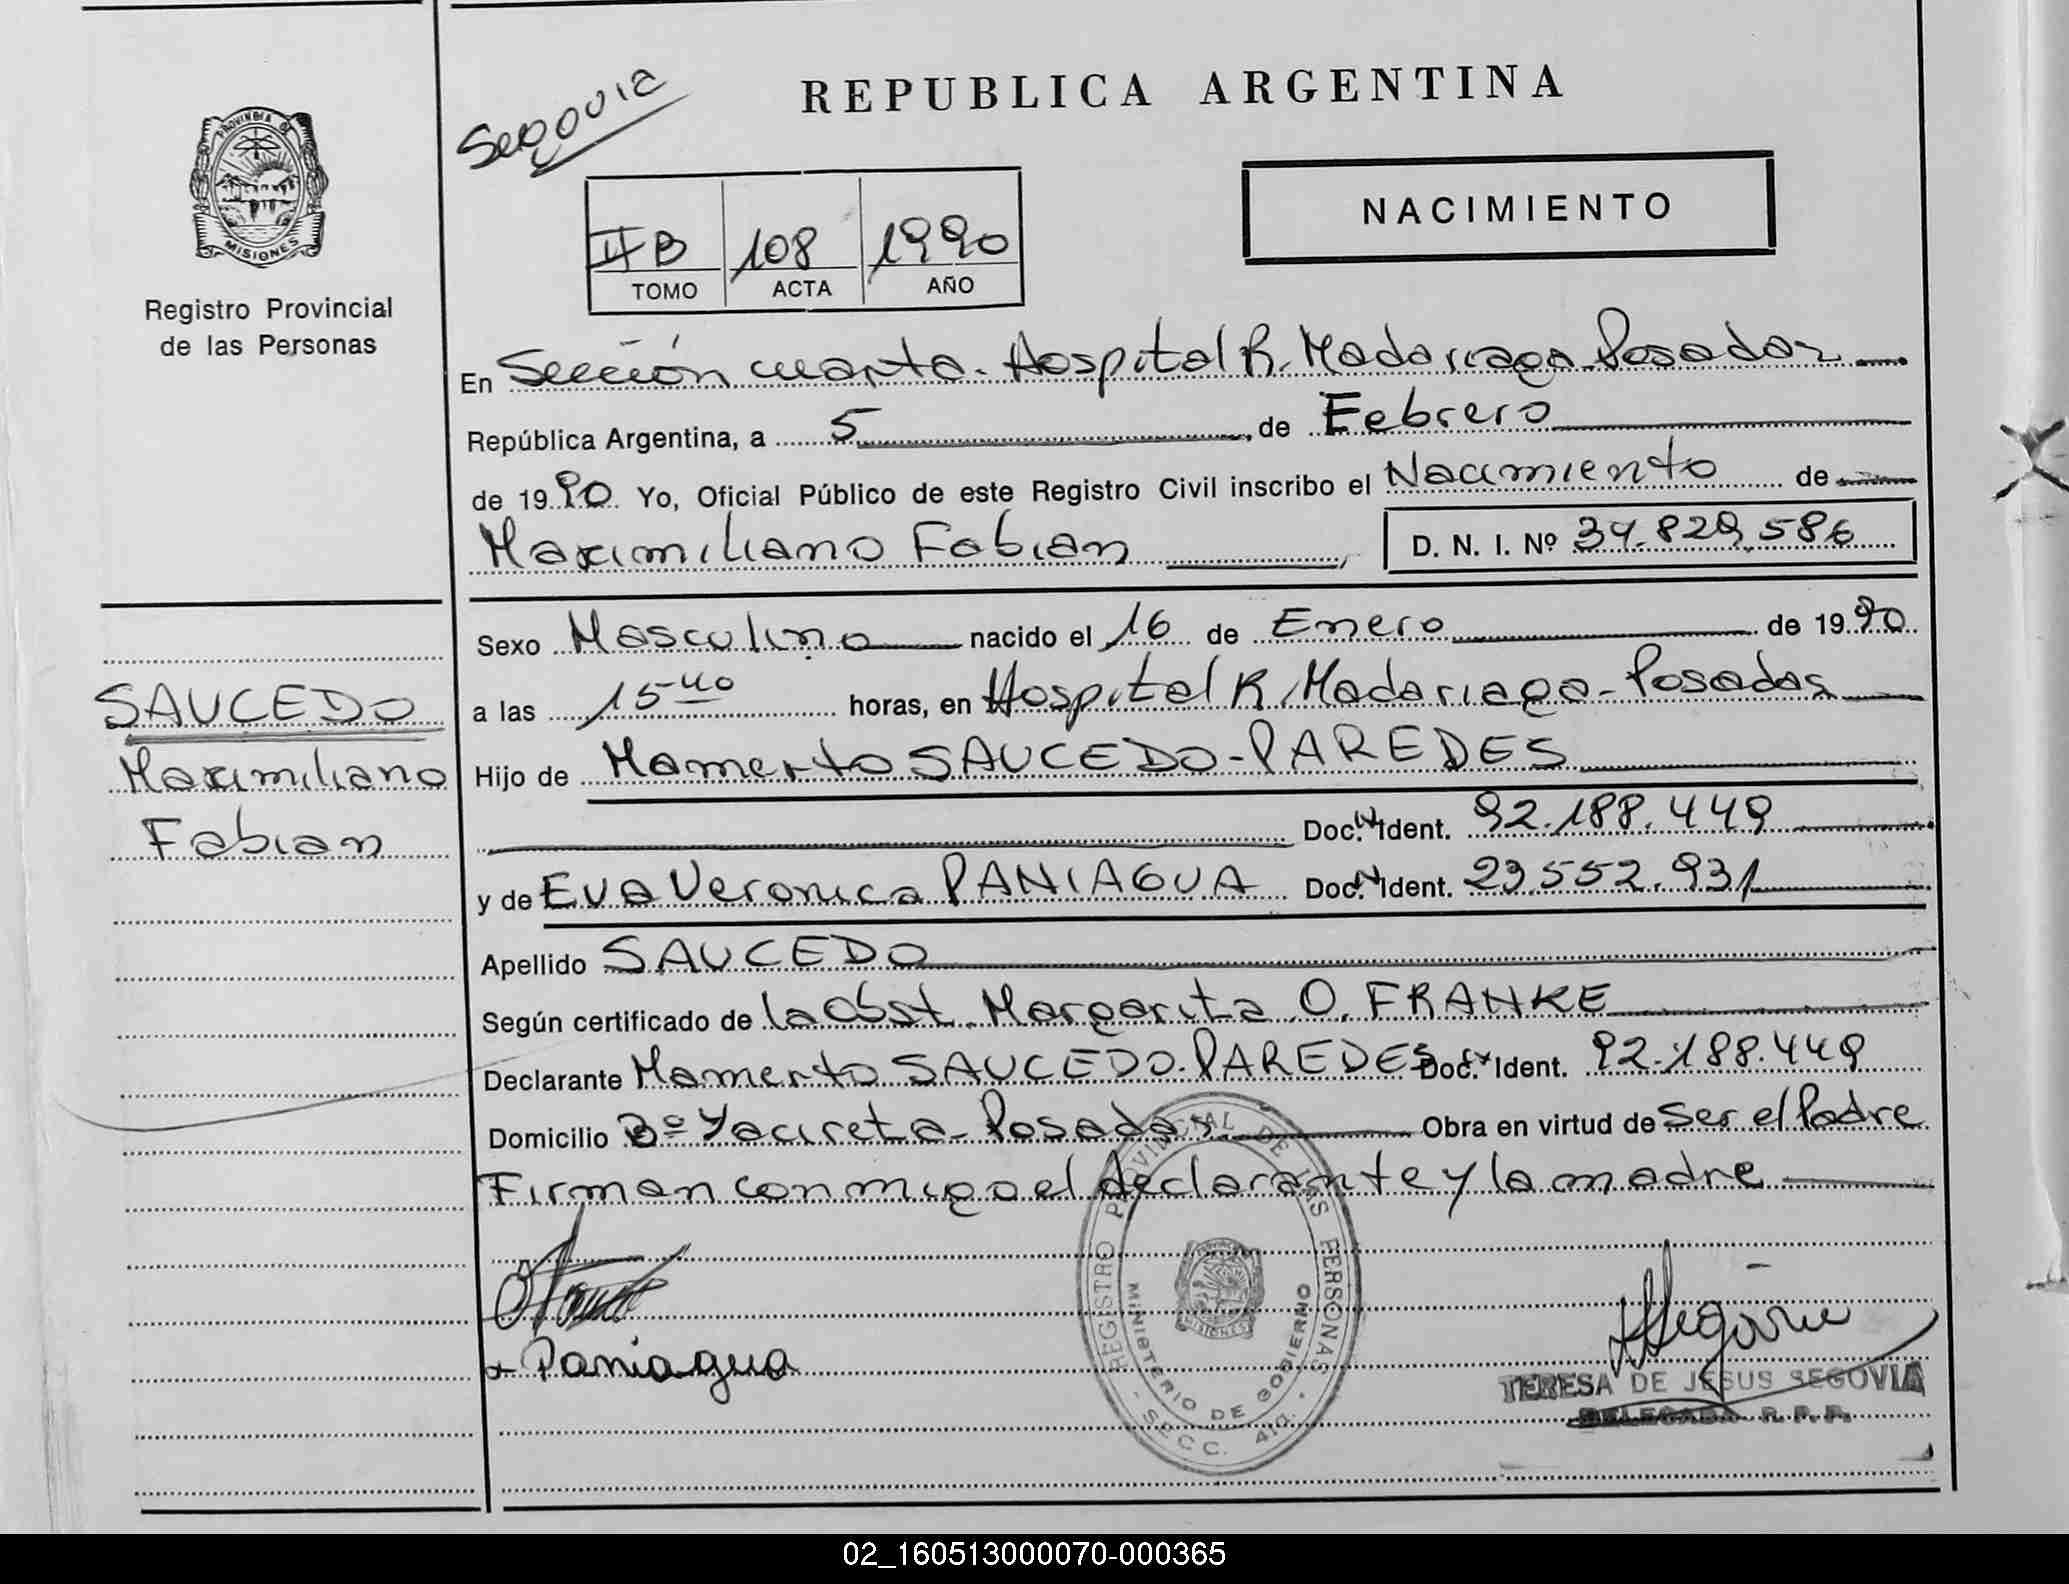 REPUBLICA ARGENTINA
Segovia
PROVINCIA DE
MISIONES
Registro Provincial
de las Personas
NACIMIENTO
II B 108 1990
TOMO ACTA AÑO
En Sección cuarta - Hospital R. Madariaga - Posadas
República Argentina, a 5 de Febrero
de 1990 Yo, Oficial Público de este Registro Civil inscribo el Nacimiento de
Maximiliano Fabian D. N. I. Nº 34.829.586
Sexo Masculino nacido el 16 de Enero de 1990
a las 15-40 horas, en Hospital R. Madariaga - Posadas
SAUCEDO
Maximiliano
Fabian
Hijo de Mamerto SAUCEDO - PAREDES
Doc. N Ident. 92.188.449
y de Eva Veronica PANIAGUA Doc. N Ident. 23.552.931
Apellido SAUCEDO
Según certificado de la Obst. Margarita O. FRANKE
Declarante Mamerto SAUCEDO - PAREDES Doc. Ident. 92.188.449
Domicilio Bº Yacireta - Posadas Obra en virtud de Ser el Padre
Firman conmigo el declarante y la madre
Paniagua
REGISTRO PROVINCIAL DE LAS PERSONAS
MINISTERIO DE GOBIERNO
MISIONES
SECC. 4ta.
TERESA DE JESUS SEGOVIA
DELEGADA R. P. P.
02_160513000070-000365